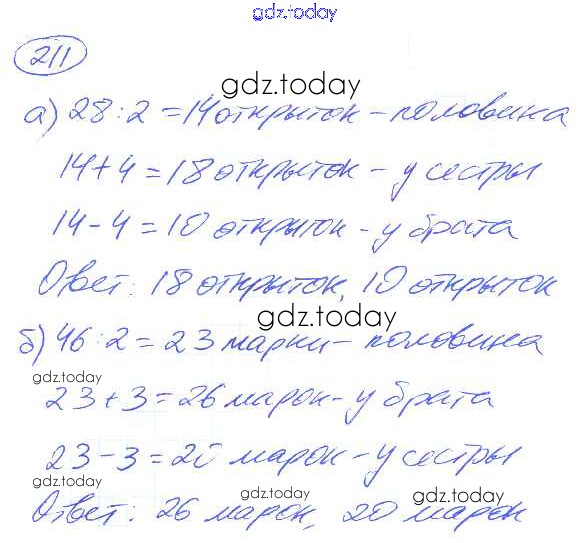 gdz.today
211
gdz.today
а) 28:2=14 открыток - половина
14+4=18 открыток - у сестры
14-4=10 открыток - у брата
Ответ: 18 открыток, 10 открыток
gdz.today
б) 46:2=23 марки - половина
gdz.today
23+3=26 марок - у брата
23-3=20 марок - у сестры
gdz.today gdz.today gdz.today
Ответ: 26 марок, 20 марок